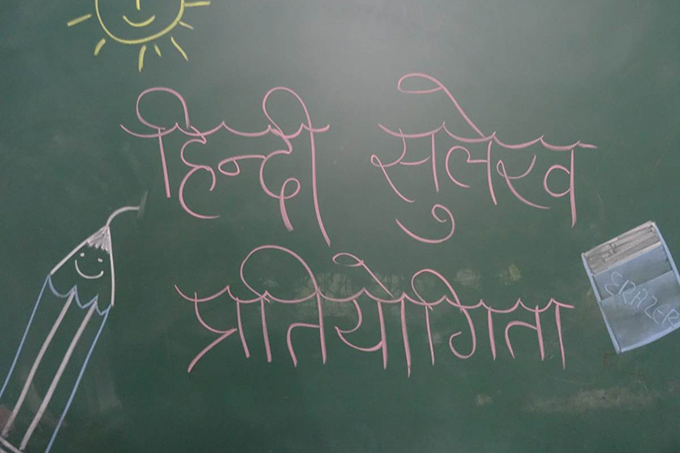 हिन्दी सुलेख
प्रतियोगिता
ERAZER